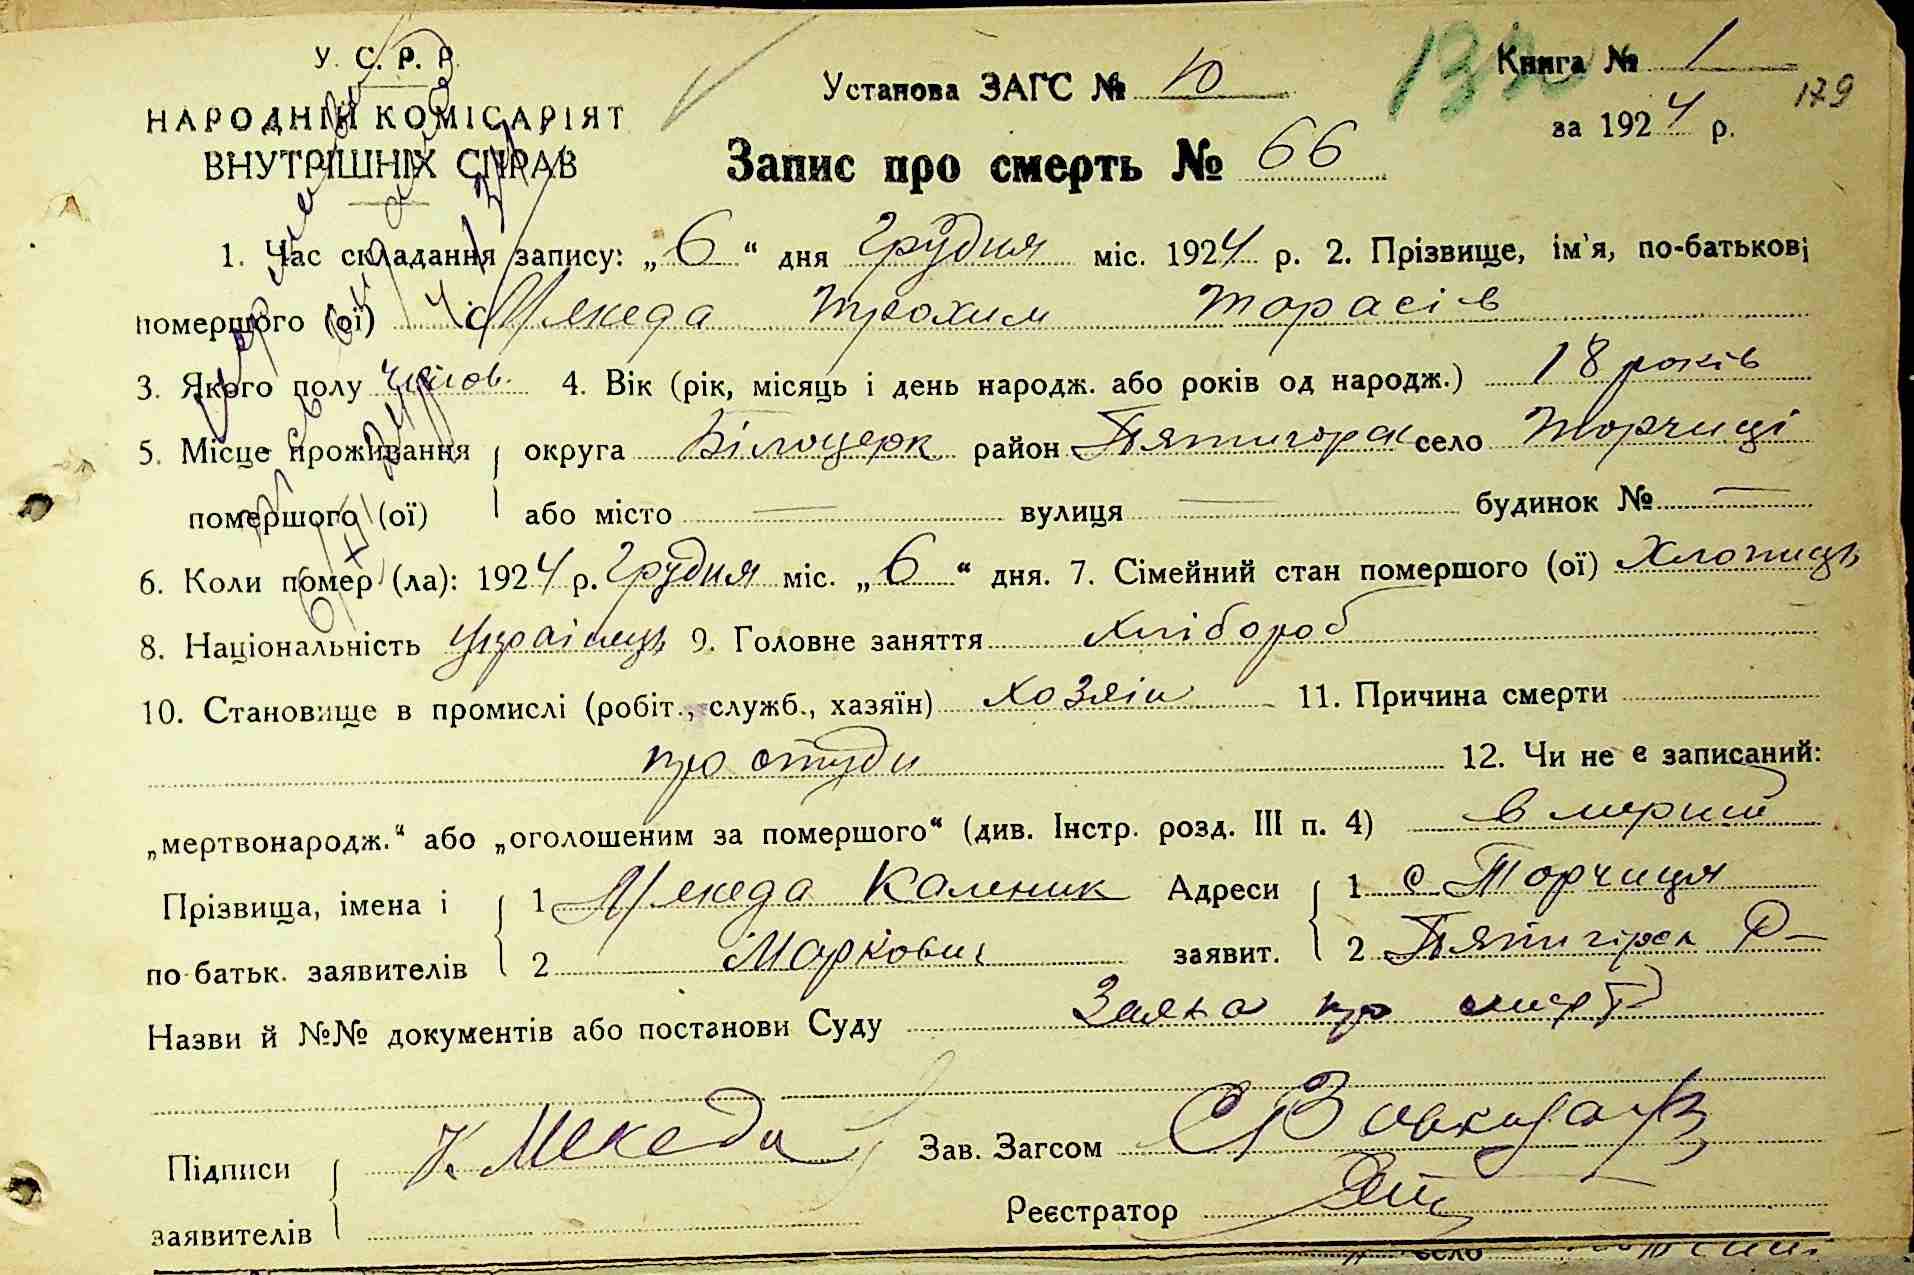 У. С. Р. Р.
НАРОДНІЙ КОМІСАРІЯТ
ВНУТРІШНІХ СПРАВ
Установа ЗАГС № 10
132
Книга № 1
179
за 1924 р.
Запис про смерть № 66
1. Час складання запису: „6“ дня Грудня міс. 1924 р. 2. Прізвище, ім'я, по-батькові
помершого (ої) Мекеда Трохим Торасів
3. Якого полу чолов. 4. Вік (рік, місяць і день народж. або років од народж.) 18 років
5. Місце проживання округа Білоцерк район Пятигорск село Торчиці
помершого (ої) або місто — вулиця — будинок № —
6. Коли помер (ла): 1924 р. Грудня міс. „6“ дня. 7. Сімейний стан помершого (ої) Хлопиць
8. Національність Українць 9. Головне заняття Хлібороб
10. Становище в промислі (робіт., служб., хазяїн) хозяін 11. Причина смерти
простуди 12. Чи не є записаний:
„мертвонародж.“ або „оголошеним за помершого“ (див. Інстр. розд. III п. 4) вмерший
Прізвища, імена і 1 Мекеда Каленик Адреси 1 с Торчиця
по батьк. заявителів 2 Маркович заявит. 2 Пятигірск Р—
Назви й №№ документів або постанови Суду Заява про смерть
Підписи К. Мекеда Зав. Загсом
заявителів Реєстратор
село